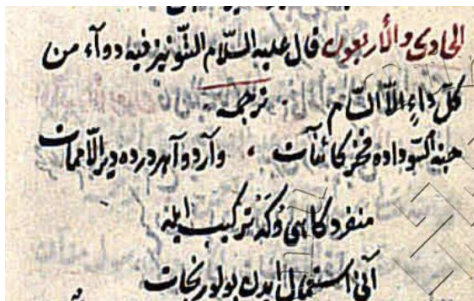 الحادى والأربعون قال عليه السلام الشونيز فيه دوآء من
كل داء الا السام ترجمه
حبة السوداده فخر كائنات وارد وآ هر درده دير الا ممات
منفرد كاهى وكه تركيب ايله
آنى استعمال ايدن بولور نجات